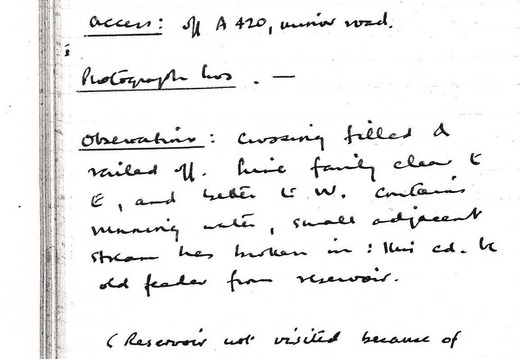 Access: off A 420, minor road.
Photograph nos. —
Observations: Crossing filled &
railed off. Line fairly clear to
E, and better to W. Contains
running water, small adjacent
stream has broken in: this cd. be
old feeder from reservoir.
(Reservoir not visited because of